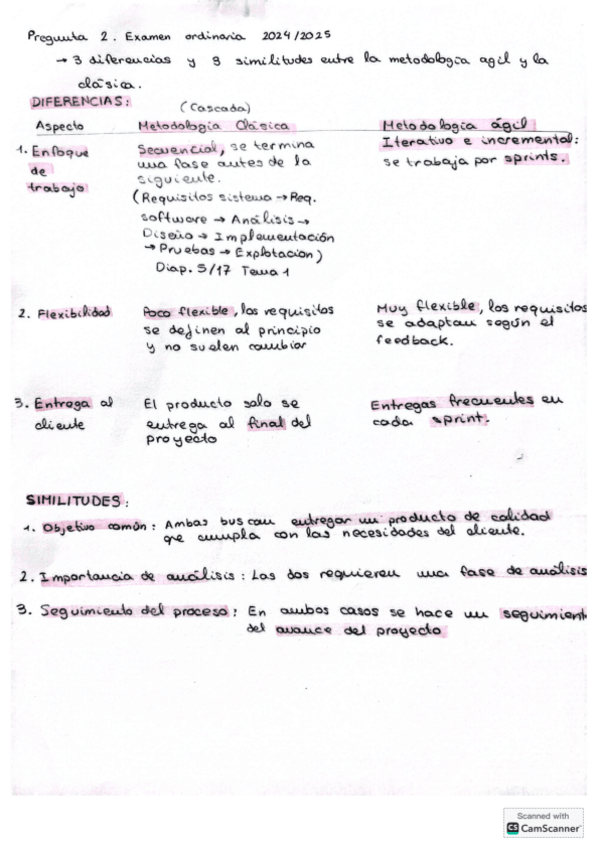 Pregunta 2. Examen ordinaria 2024/2025
→ 3 diferencias y 3 similitudes entre la metodología agil y la
clásica.
DIFERENCIAS:
(Cascada)
Aspecto Metodología Clásica Metodología ágil
1. Enfoque de trabajo
Secuencial, se termina
una fase antes de la
siguiente.
(Requisitos sistema → Req.
software → Análisis →
Diseño → Implementación
→ Pruebas → Explotacion)
Diap. 5/17 Tema 1
Iterativo e incremental:
se trabaja por sprints.
2. Flexibilidad
Poco flexible, los requisitos
se definen al principio
y no suelen cambiar
Muy flexible, los requisitos
se adaptan según el
feedback.
3. Entrega al
cliente
El producto solo se
entrega al final del
proyecto
Entregas frecuentes en
cada sprint.
SIMILITUDES:
1. Objetivo común: Ambas buscan entregar un producto de calidad
que cumpla con las necesidades del cliente.
2. Importancia de análisis: Las dos requieren una fase de análisis
3. Seguimiento del proceso: En ambos casos se hace un seguimient
del avance del proyecto
Scanned with
CS CamScanner